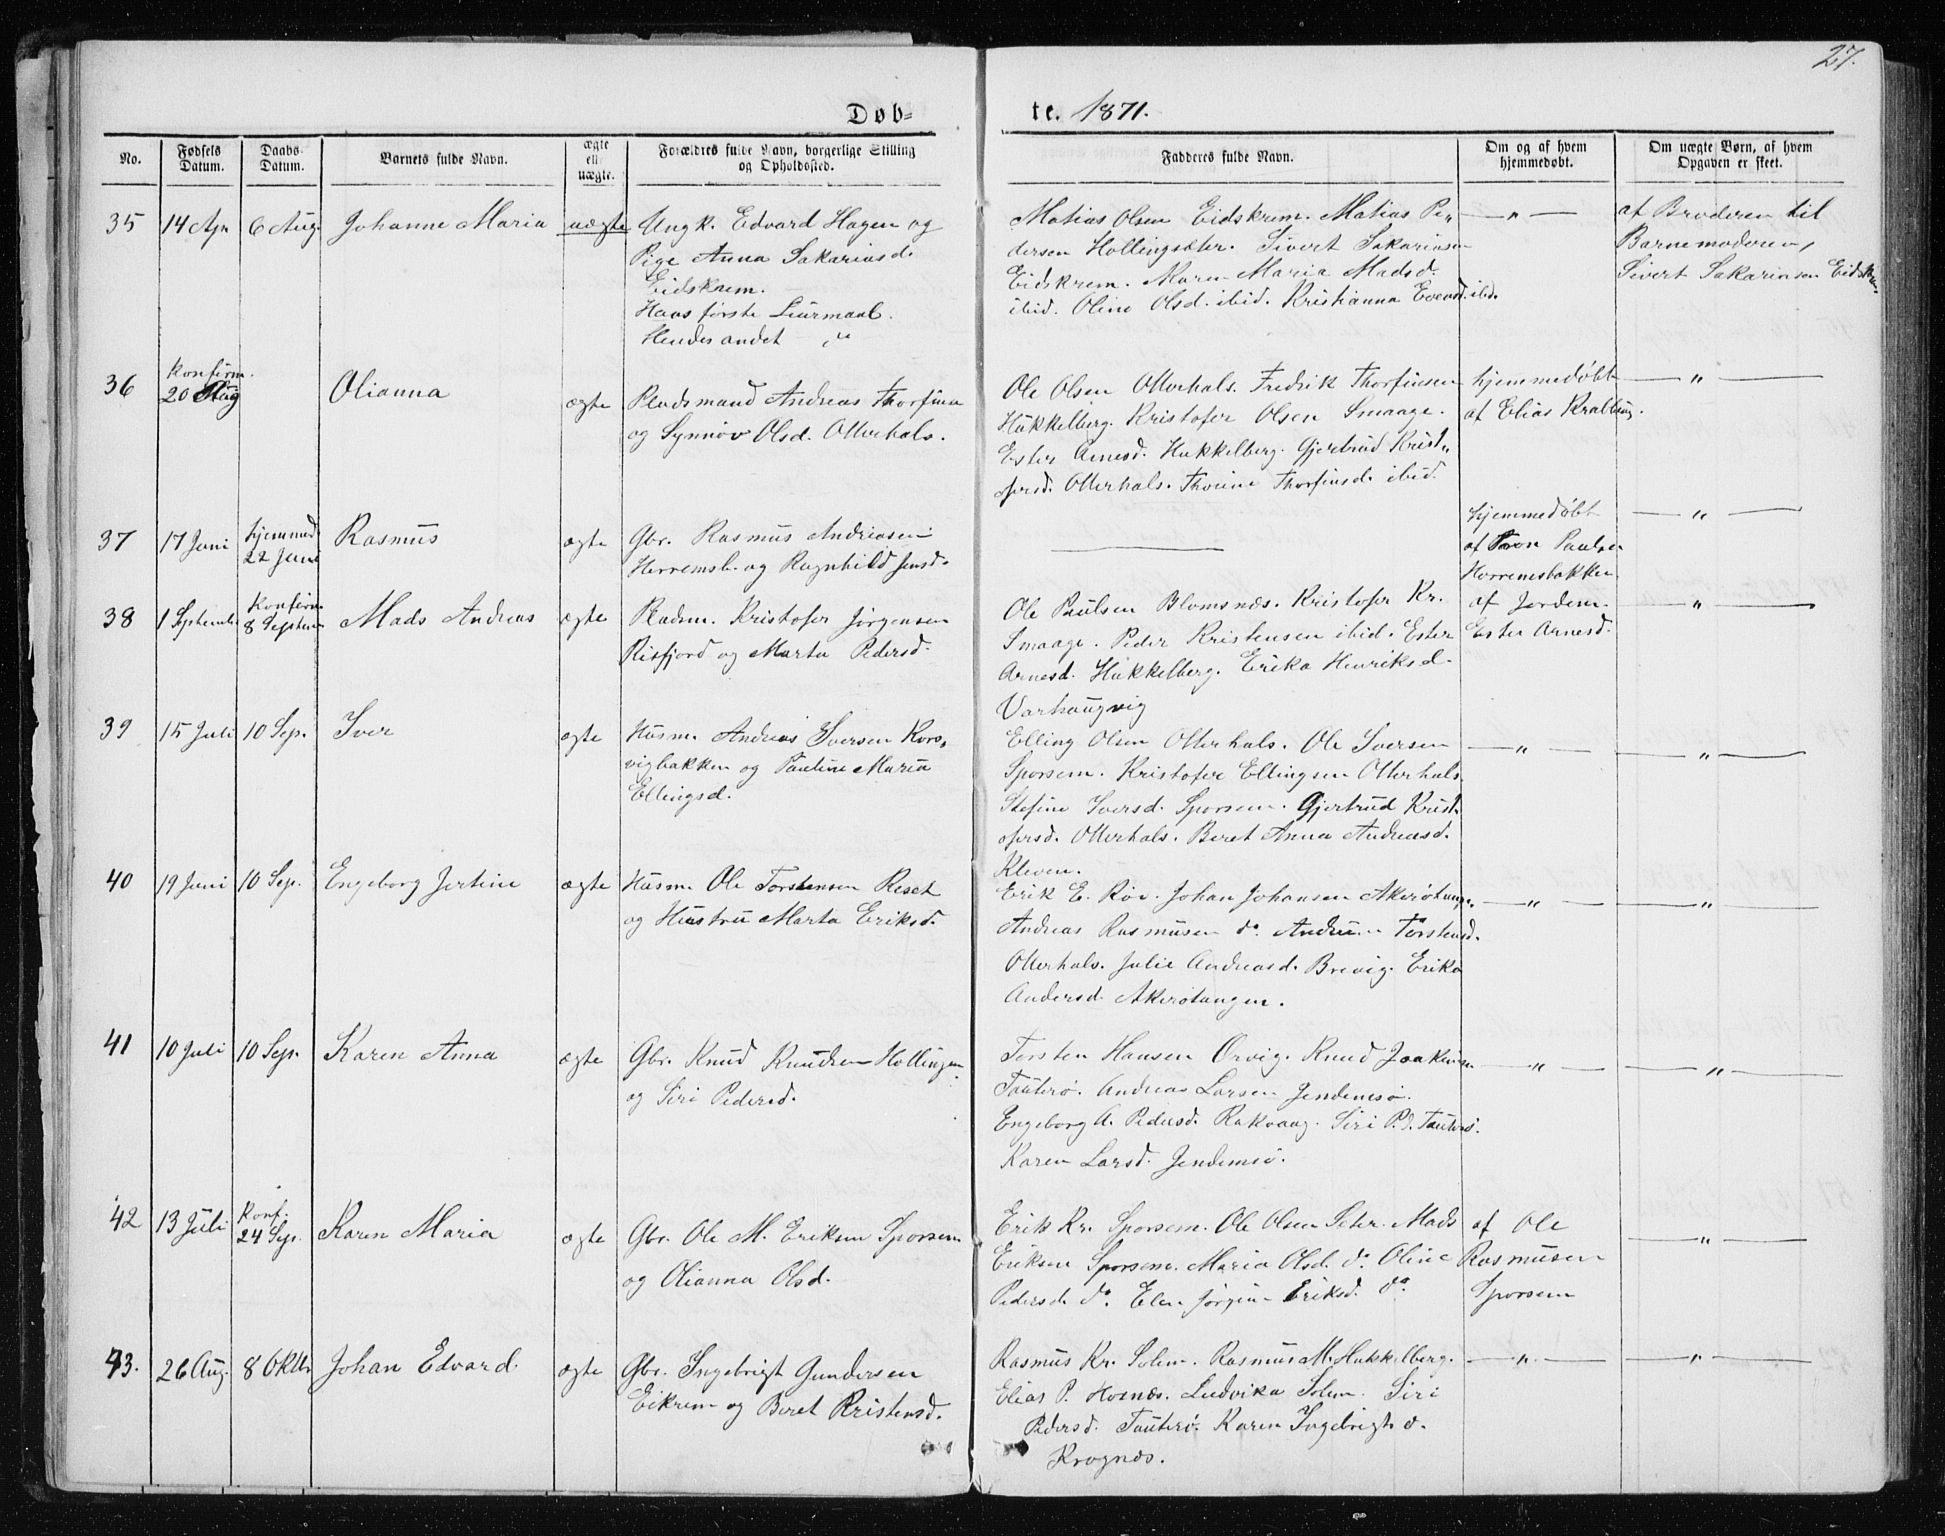 27.
Døb-
te. 1871.
No.
Fødsels Datum.
Daabs- Datum.
Barnets fulde Navn.
ægte ell. uægte.
Forældres fulde Navn, borgerlige Stilling og Opholdssted.
Fadderes fulde Navn.
Om og af hvem hjemmedøbt.
Om uægte Børn, af hvem Opgaven er skeet.
35 14 Apr 6 Aug. Johanne Maria uægte Ungk. Edvard Hagen og
Pige Anna Sakariasd.
Eidskrem.
Hans første Leiermaal.
Hendes andet — „ —
Matias Olsen Eidskrem. Matias Pe-
dersen Hollingsæter. Sivert Sakariasen
Eidskrem. Maren Maria Madsd.
ibid. Oline Olsd. ibid. Kristianna Evensd. ibd.
— „ —
af Broderen til
Barnemoderen,
Sivert Sakariasen Eidskrem.
36 Konfirm.
20 Aug Olianna ægte Pladsmand Andreas Thorfinn
og Synnøv Olsd. Otterhals.
Ole Olsen Otterhals. Fredrik Thorfinsen
Hukkelberg. Kristofer Olsen Smaage.
Ester Arnesd. Hukkelberg. Gjertrud Krist-
ofersd. Otterhals. Thorine Thorfinsd. ibid.
hjemmedøbt
af Elias Kralling.
— „ —
37 17 Juni hjemmed.
22 Juni Rasmus ægte Gbr. Rasmus Andreasen
Herremsb. og Ragnhild Jensd.
hjemmedøbt
af Paulsen
Horremsbakken
— „ —
38 1 Septemb. Konfirm.
8 Septem Mads Andreas ægte Pladsm. Kristofer Jørgensen
Risfjord og Marta Pedersd.
Ole Paulsen Blomsnæs. Kristofer Kr.
Smaage. Peder Kristensen ibid. Ester
Arnesd. Hukkelberg. Erika Henriksd.
Varhaugvig
af Jordem.
Ester Arnesd.
— „ —
39 15 Juli 10 Sep. Iver ægte Husm. Andreas Iversen Kors-
vigbakken og Pauline Maria
Ellingsd.
Elling Olsen Otterhals. Ole Iversen
Sporsem. Kristofer Ellingsen Otterhals
Stefine Iversd. Sporsem. Gjertrud Krist-
ofersd. Otterhals. Beret Anna Andreasd.
Kleven.
— „ —
— „ —
40 19 Juni 10 Sep. Engeborg Jertine ægte Husm. Ole Torstensen Reset
og Hustru Marta Eriksd.
Erik E. Röv. Johan Johansen Akerøtangen.
Andreas Rasmusen do. Torstensd.
Otterhals. Julie Andreasd. Brevig. Erika
Andersd. Akerøtangen.
— „ —
— „ —
41 10 Juli 10 Sep. Karen Anna ægte Gbr. Knud Knudsen Hollingen
og Siri Pedersd.
Torsten Hansen Orvig. Knud Joakimsen
Tauterø. Andreas Larsen Jendemsø.
Engeborg A. Pedersd. Rakvaag. Siri P.d. Tauterø.
Karen Larsd. Jendemsø.
— „ —
— „ —
42 13 Juli Konf.
24 Sep. Karen Maria ægte Gbr. Ole M. Eriksen Sporsem
og Olianna Olsd.
Erik Kr. Sporsem. Ole Olsen Seter. Mads
Eriksen Sporsem. Maria Olsd. do. Oline
Pedersd. do. Elen Jørgine Eriksd. do.
af Ole
Rasmusen
Sporsem
— „ —
43. 26 Aug. 8 Oktbr Johan Edvard. ægte Gbr. Ingebrigt Gundersen
Eikrem og Beret Kristensd.
Rasmus Kr. Solem. Rasmus M. Hukkelberg.
Elias P. Hornæs. Ludvika Solem. Siri
Pedersd. Tauterø. Karen Ingebrigtsd.
Krognæs.
— „ —
— „ —